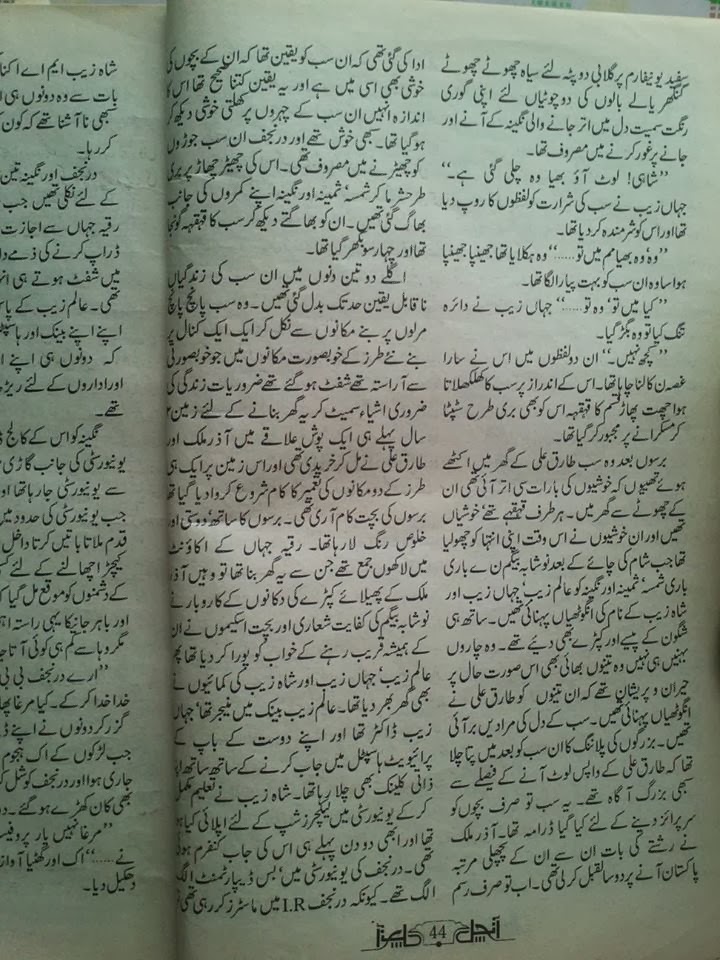 سفید یونیفارم پر گلابی دوپٹہ لئے سیاہ چھوٹے چھوٹے
گھنگھریالے بالوں کی دو چوٹیاں لئے اپنی گوری
رنگت سمیت دل میں اتر جانے والی نگینہ کے آنے اور
جانے پر غور کرنے میں مصروف تھا۔
”شاہی! لوٹ آؤ بھیا وہ چلی گئی ہے۔“
جہاں زیب نے سب کی شرارت کو لفظوں کا روپ دیا
تھا اور اس کو شرمندہ کر دیا تھا۔
”وہ‘ وہ بھیا مم میں تو……“ وہ ہکلایا تھا جھینپا جھینپا
ہوا سا وہ ان سب کو بہت پیارا لگا تھا۔
”کیا میں تو‘ وہ تو……“ جہاں زیب نے دائرہ
تنگ کیا تو وہ بگڑ گیا۔
”کچھ نہیں۔“ ان دو لفظوں میں اس نے سارا
غصہ نکالنا چاہا تھا۔ اس کے انداز پر سب کا کھلکھلاتا
ہوا چھت پھاڑ قسم کا قہقہہ اس کو بھی بری طرح سٹپٹا
کر مسکرانے پر مجبور کر گیا تھا۔
برسوں بعد وہ سب طارق علی کے گھر میں اکٹھے
ہوئے تھے یوں کہ خوشیوں کی بارات سی اتر آئی تھی ان
کے چھوٹے سے گھر میں۔ ہر طرف قہقہے تھے‘ خوشیاں
تھیں اور ان خوشیوں نے اس وقت اپنی انتہا کو چھو لیا
تھا جب شام کی چائے کے بعد نوشابہ بیگم نے باری
باری شمسہ‘ ثمینہ اور نگینہ کو عالم زیب‘ جہاں زیب اور
شاہ زیب کے نام کی انگوٹھیاں پہنائی تھیں۔ ساتھ ہی
شگون کے پیسے اور کپڑے بھی دیئے تھے۔ وہ چاروں
بہنیں ہی نہیں وہ تینوں بھائی بھی اس صورت حال پر
حیران و پریشان تھے کہ ان تینوں کو طارق علی نے
انگوٹھیاں پہنائی تھیں۔ سب کے دل کی مرادیں بر آئی
تھیں۔ بزرگوں کی پلاننگ کا ان سب کو بعد میں پتا چلا
تھا کہ طارق علی کے واپس لوٹ آنے کے فیصلے سے
سبھی بزرگ آگاہ تھے۔ یہ سب تو صرف بچوں کو
سرپرائز دینے کے لئے کیا گیا ڈرامہ تھا۔ آذر ملک
نے رشتے کی بات ان سے ان کے پچھلی مرتبہ
پاکستان آنے پر دو سال قبل کر لی تھی۔ اب تو صرف رسم
ادا کی گئی تھی کہ ان سب کو یقین تھا کہ ان کے بچوں کی
خوشی بھی اسی میں ہے اور یہ یقین کتنا صحیح تھا اس کا
اندازہ انہیں ان سب کے چہروں پر کھلتی خوشی دیکھ کر
ہو گیا تھا۔ سبھی خوش تھے اور در نجف ان سب جوڑوں
کو چھیڑنے میں مصروف تھی۔ اس کی چھیڑ چھاڑ پر بری
طرح شرما کر شمسہ‘ ثمینہ اور نگینہ اپنے کمروں کی جانب
بھاگ گئی تھیں۔ ان کو بھاگتے دیکھ کر سب کا قہقہہ گونجا
تھا اور چہار سو بکھر گیا تھا۔
اگلے دو تین دنوں میں ان سب کی زندگیاں
ناقابل یقین حد تک بدل گئی تھیں۔ وہ سب پانچ پانچ
مرلوں پر بنے مکانوں سے نکل کر ایک ایک کنال پر
بنے نئے طرز کے خوبصورت مکانوں میں جو خوبصورتی
سے آراستہ تھے شفٹ ہو گئے تھے ضروریات زندگی کی
ضروری اشیاء سمیٹ کر یہ گھر بنانے کے لئے زمین
سال پہلے ہی ایک پوش علاقے میں آذر ملک اور
طارق علی نے مل کر خریدی تھی اور اس زمین پر ایک ہی
طرز کے دو مکانوں کی تعمیر کا کام شروع کروا دیا گیا تھا
برسوں کی بچت کام آ رہی تھی۔ برسوں کا ساتھ‘ دوستی اور
خلوص رنگ لا رہا تھا۔ رقیہ جہاں کے اکاؤنٹ
میں لاکھوں جمع تھے جن سے یہ گھر بنا تھا تو وہیں آذر
ملک کے پھیلائے کپڑے کی دکانوں کے کاروبار نے
نوشابہ بیگم کی کفایت شعاری اور بچت اسکیموں نے ان
کے ہمیشہ قریب رہنے کے خواب کو پورا کر دیا تھا پھر
عالم زیب‘ جہاں زیب اور شاہ زیب کی کمائیوں نے
بھی گھر بھر دیا تھا۔ عالم زیب بینک میں منیجر تھا‘ جہاں
زیب ڈاکٹر تھا اور اپنے دوست کے باپ کے
پرائیویٹ ہاسپٹل میں جاب کرنے کے ساتھ ساتھ اپنا
ذاتی کلینک بھی چلا رہا تھا۔ شاہ زیب نے تعلیم مکمل
کر کے یونیورسٹی میں لیکچرز شپ کے لئے اپلائی کیا ہوا
تھا اور ابھی دو دن پہلے ہی اس کی جاب کنفرم ہوئی
تھی۔ در نجف کی یونیورسٹی میں‘ بس ڈیپارٹمنٹ الگ
الگ تھے۔ کیونکہ در نجف I.R میں ماسٹرز کر رہی تھی
شاہ زیب ایم اے اکنا
بات سے وہ دونوں ہی ا
سبھی نا آشنا تھے کہ کون
کر رہا۔
در نجف اور نگینہ تین
کے لئے نکلی تھیں جب
رقیہ جہاں سے اجازت
ڈراپ کرنے کی ذمے دا
میں شفٹ ہوتے ہی انہ
تھی۔ عالم زیب کے پاس
اپنے اپنے بینک اور ہاسپٹل
کہ دونوں ہی اپنے ا
اور اداروں کے لئے ریڑھ
تھے۔
نگینہ کو اس کے کالج ڈ
یونیورسٹی کی جانب گاڑی
سے یونیورسٹی جا رہا تھا اور
جب یونیورسٹی کی حدود میں
قدم ملاتا باتیں کرتا داخل
کیچڑ اچھالنے کے لئے
کے دشمنوں کو موقع مل گیا
اور باہر جانے کا یہی راستہ
مگر وہاں سے کم ہی کوئی آتا جا
”ارے در نجف بی بی
خدا خدا کر کے۔ کیا مرغا پھا
گزر کر دونوں نے اپنے ڈ
جب لڑکوں کے اک ہجوم
جاری ہوا اور در نجف کو شل
بھی کان کھڑے ہو گئے۔
”مرغا نہیں یار پروفیسر
نے……“ اک اور گھٹیا آواز
دھکیل دیا۔
آنچل 44